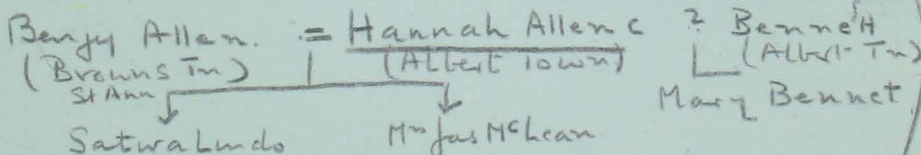 Benjy Allen. = Hannah Allen c ? Bennett
(Browns Tn) (Albert Town) (Albert Tn)
St Ann Mary Bennet
Satira Lindo Mrs Jas McLean